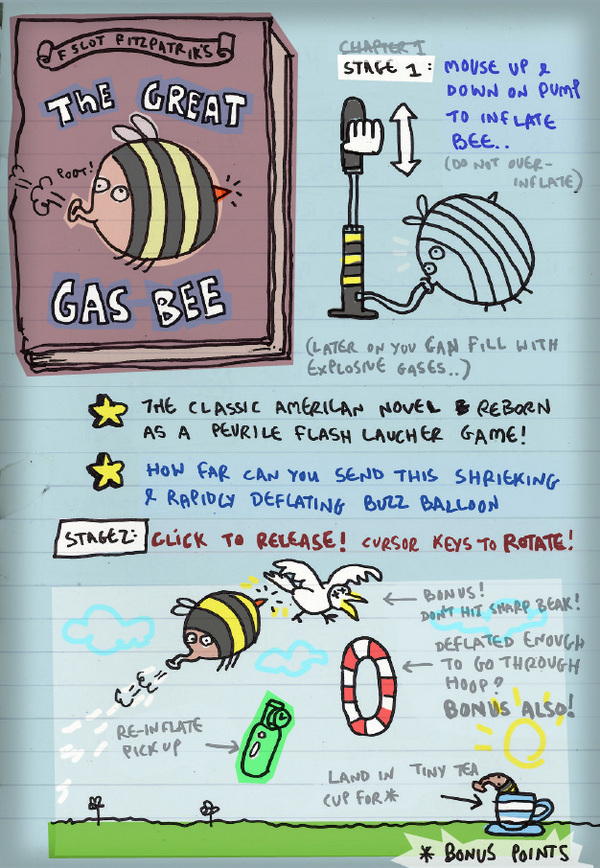 F SLOT FITZPATRIK'S
The GREAT
POOT!
GAS BEE
CHAPTER I
STAGE 1:
MOUSE UP &
DOWN ON PUMP
TO INFLATE
BEE..
(DO NOT OVER-
INFLATE)
(LATER ON YOU CAN FILL WITH
EXPLOSIVE GASES..)
THE CLASSIC AMERICAN NOVEL REBORN
AS A PEURILE FLASH LAUCHER GAME!
HOW FAR CAN YOU SEND THIS SHRIEKING
& RAPIDLY DEFLATING BUZZ BALLOON
STAGE 2: CLICK TO RELEASE! CURSOR KEYS TO ROTATE!
BONUS!
DON'T HIT SHARP BEAK!
DEFLATED ENOUGH
TO GO THROUGH
HOOP?
BONUS ALSO!
RE-INFLATE
PICK UP
LAND IN TINY TEA
CUP FOR *
* BONUS POINTS